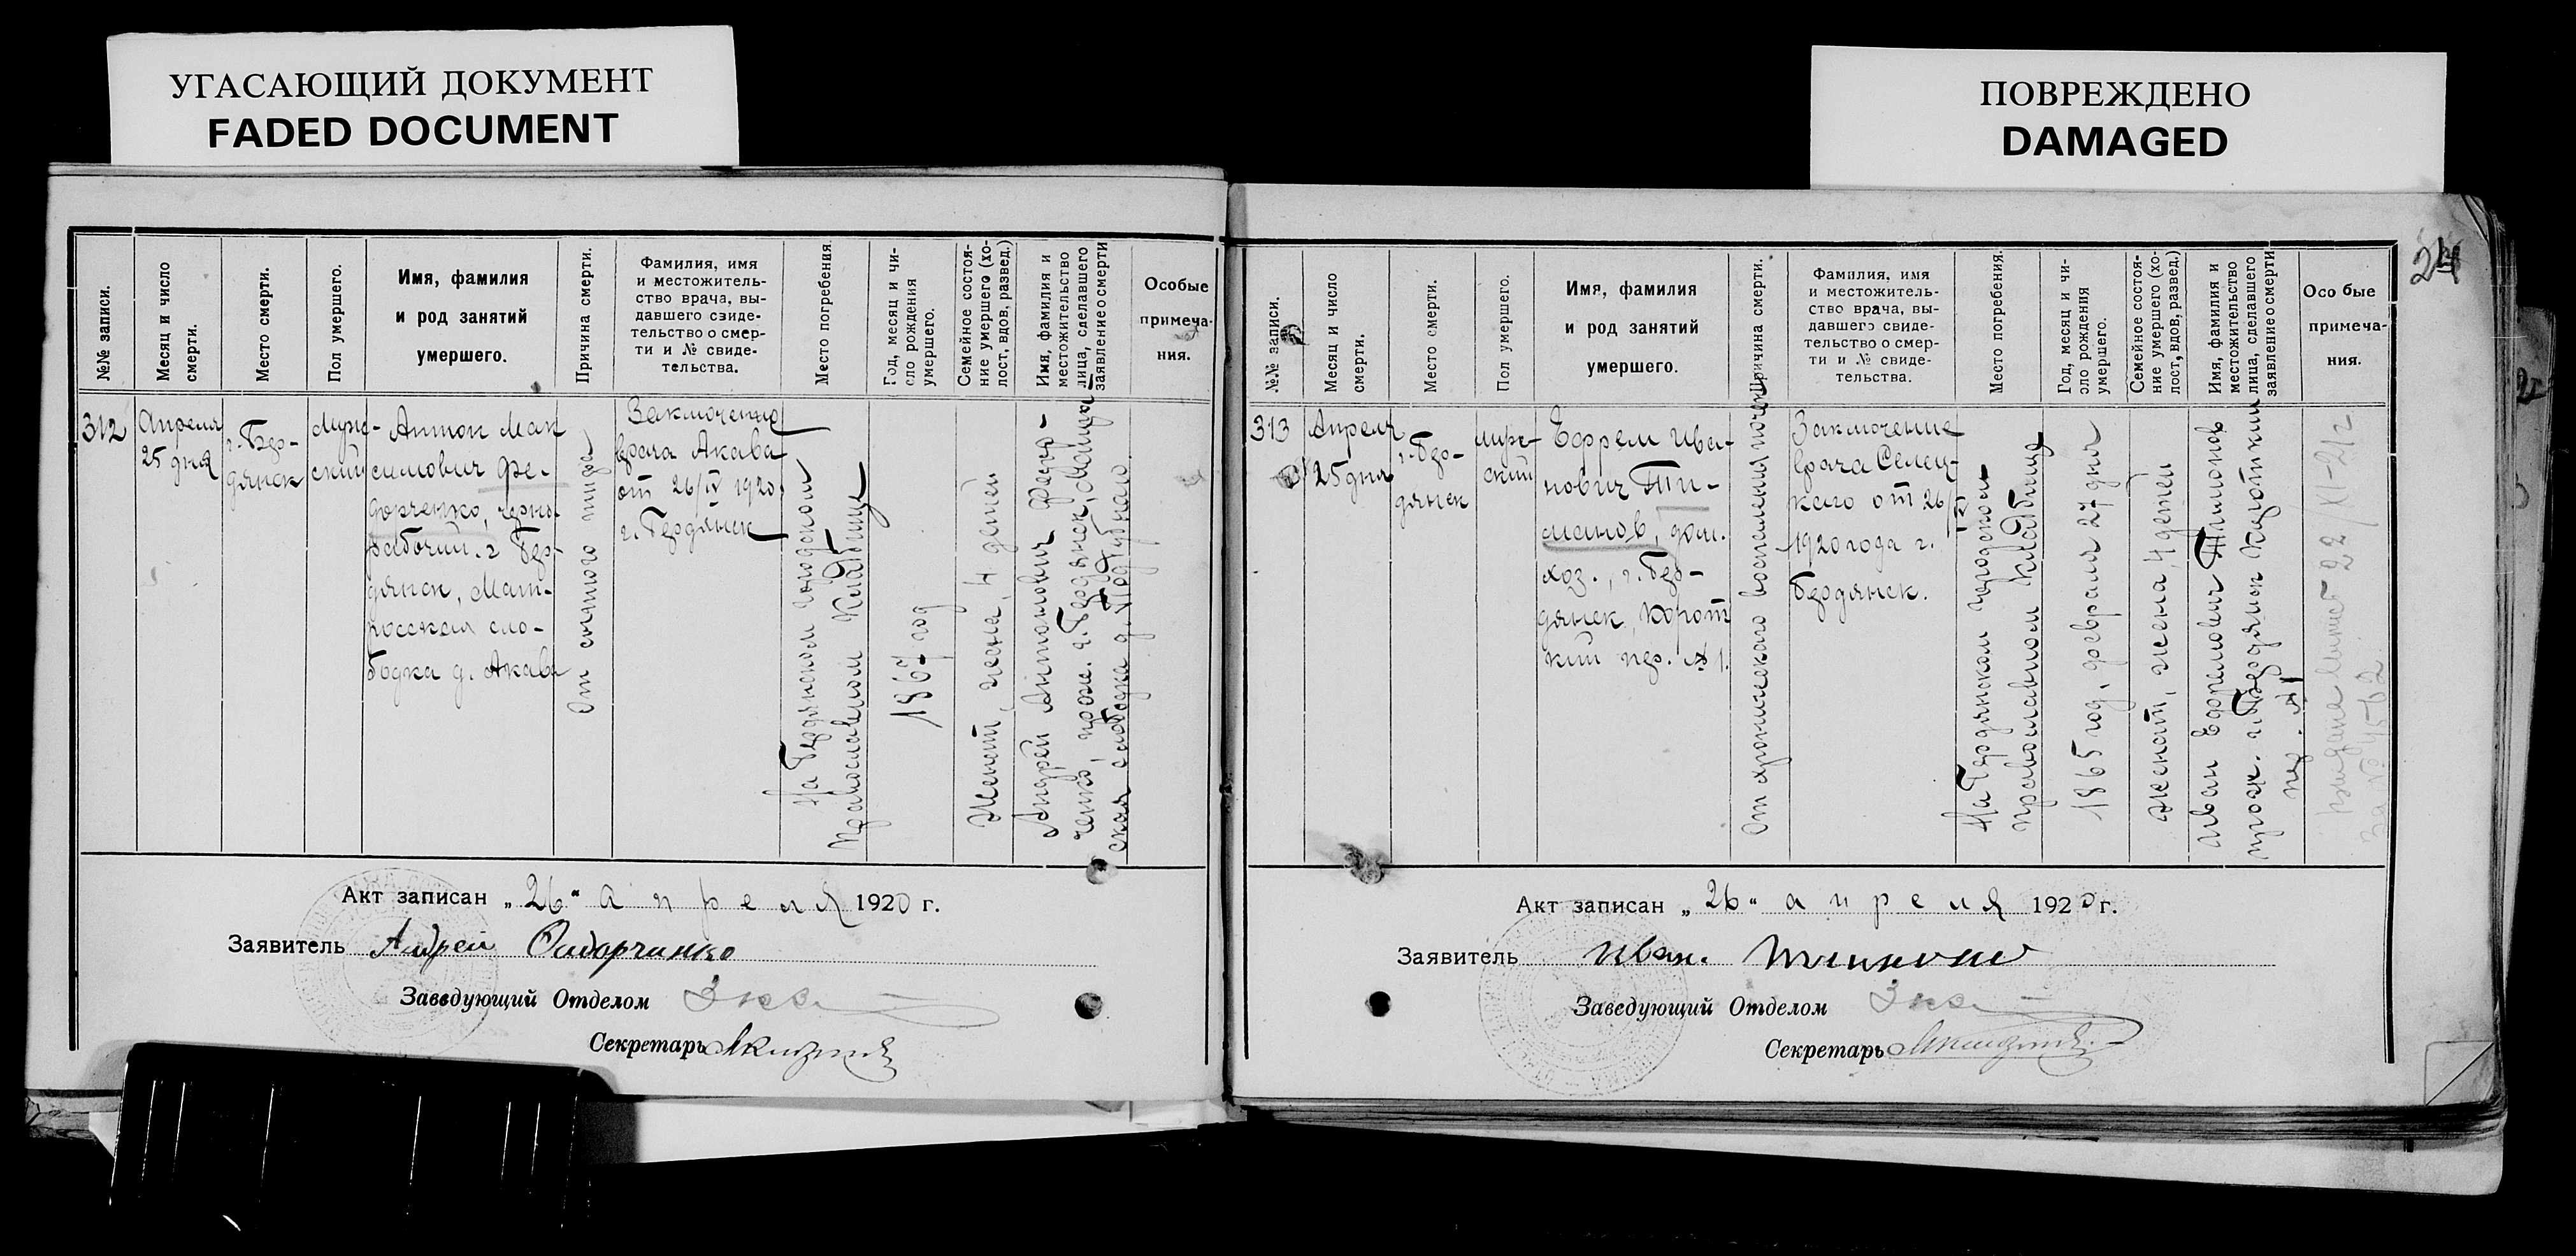 УГАСАЮЩИЙ ДОКУМЕНТ
FADED DOCUMENT
ПОВРЕЖДЕНО
DAMAGED
№№ записи.
Месяц и число
смерти.
Место смерти.
Пол умершего.
Имя, фамилия
и род занятий
умершего.
Причина смерти.
Фамилия, имя
и местожитель-
ство врача, вы-
давшего свиде-
тельство о смер-
ти и № свиде-
тельства.
Место погребения.
Год, месяц и чи-
сло рождения
умершего.
Семейное состоя-
ние умершего (хо-
лост, вдов, развед.)
Имя, фамилия и
местожительство
лица, сделавшего
заявление о смерти
Особые
примеча-
ния.
312
Апреля
25 дня
г. Бер-
дянск
Муж-
ский
Антон Мак
симович Фе-
дорченко, черно-
рабочий. г. Бер-
дянск, Мат-
росская сло-
бодка д. Акава
От сыпного тифа
Заключение
врача Акава
от 26/IV 1920
г. Бердянск
На Бердянском городском
Православном кладбище
1867 год
Женат, жена, 4 детей
Андрей Антонович Федор-
ченко, прож. г. Бердянск, Матрос-
ская слободка д.
Акт записан „26" апреля 1920 г.
Заявитель Андрей
Заведующий Отделом
Секретарь
24
№№ записи.
Месяц и число
смерти.
Место смерти.
Пол умершего.
Имя, фамилия
и род занятий
умершего.
Причина смерти.
Фамилия, имя
и местожитель-
ство врача, вы-
давшего свиде-
тельство о смер-
ти и № свиде-
тельства.
Место погребения.
Год, месяц и чи-
сло рождения
умершего.
Семейное состоя-
ние умершего (хо-
лост, вдов, развед.)
Имя, фамилия и
местожительство
лица, сделавшего
заявление о смерти
Особые
примеча-
ния.
313
Апреля
25 дня
г. Бер-
дянск
Муж-
ский
Ефрем Ива-
нович Ти-
манов, дом.
хоз., г. Бер-
дянск, Корот
кий пер. № 1.
От хронического воспаления почек
Заключение
врача Селец-
кого от 26/IV
1920 года г.
Бердянск.
На Бердянском городском
православном кладбище
1865 год, февраля 27 дня
Женат, жена, 4 детей
Иван Ефремович Тимонов
прож. г. Бердянск Короткий
пер. № 1
22/XI-21 г.
За № 4562
Акт записан „26" апреля 1920 г.
Заявитель Иван
Заведующий Отделом
Секретарь